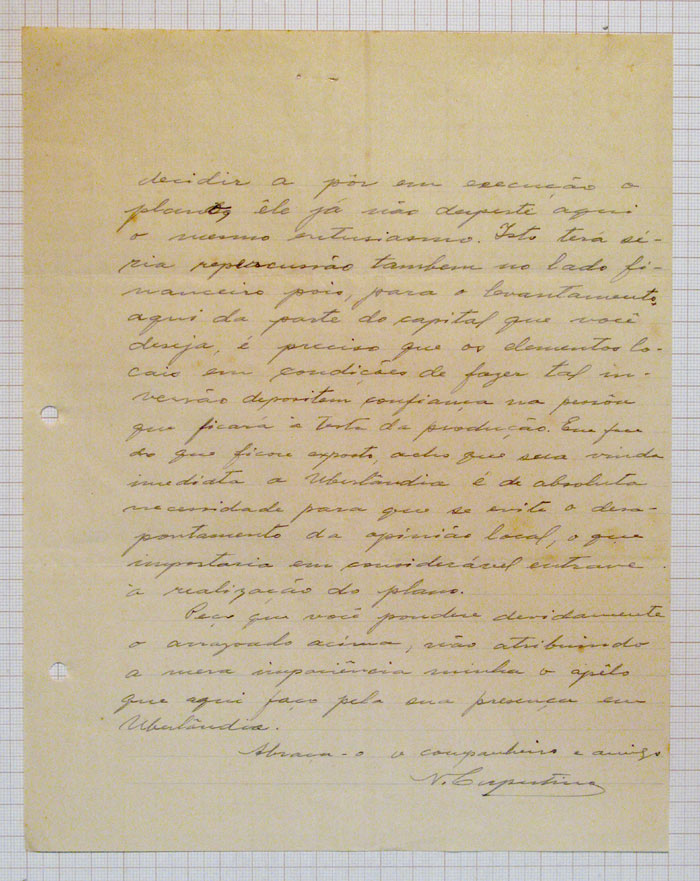 decidir a pôr em execução o
plano, êle já não desperte aqui
o mesmo entusiasmo. Isto terá sé-
ria repercussão tambem no lado fi-
nanceiro pois, para o levantamento,
aqui da parte do capital que você
deseja, é preciso que os elementos lo-
cais em condições de fazer tal in-
versão depositem confiança na pessôa
que ficará à testa da produção. Em face
do que ficou exposto, acho que sua vinda
imediata a Uberlândia é de absoluta
necessidade para que se evite o desa-
pontamento da opinião local, o que
importaria em consideravel entrave
à realização do plano.
Peço que você pondere devidamente
o arrazoado acima, não atribuindo
a mera impaciência minha o apêlo
que aqui faço pela sua presença em
Uberlândia.
Abraça-o o companheiro e amigo
N. Cupertino